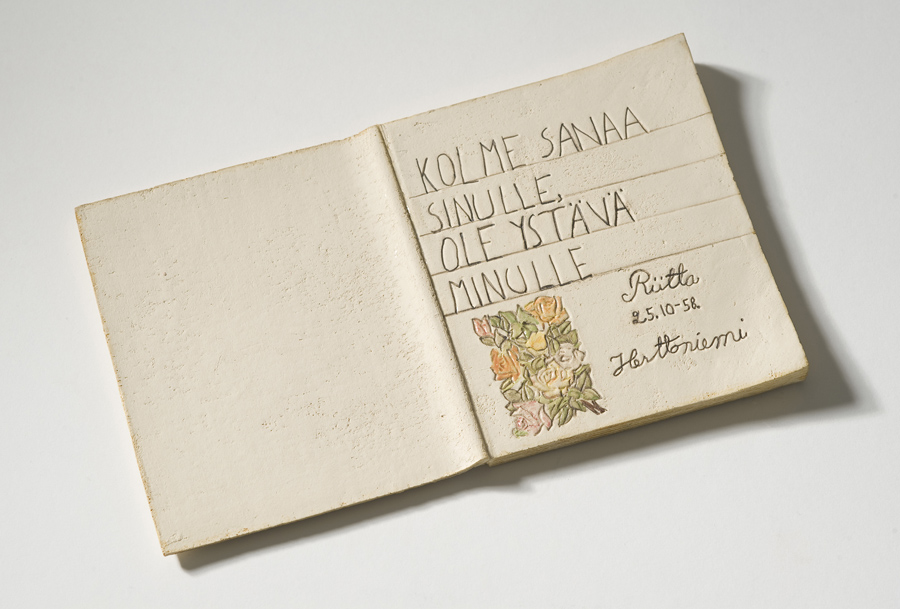 KOLME SANAA
SINULLE,
OLE YSTÄVÄ
MINULLE
Riitta
25.10-58.
Herttoniemi